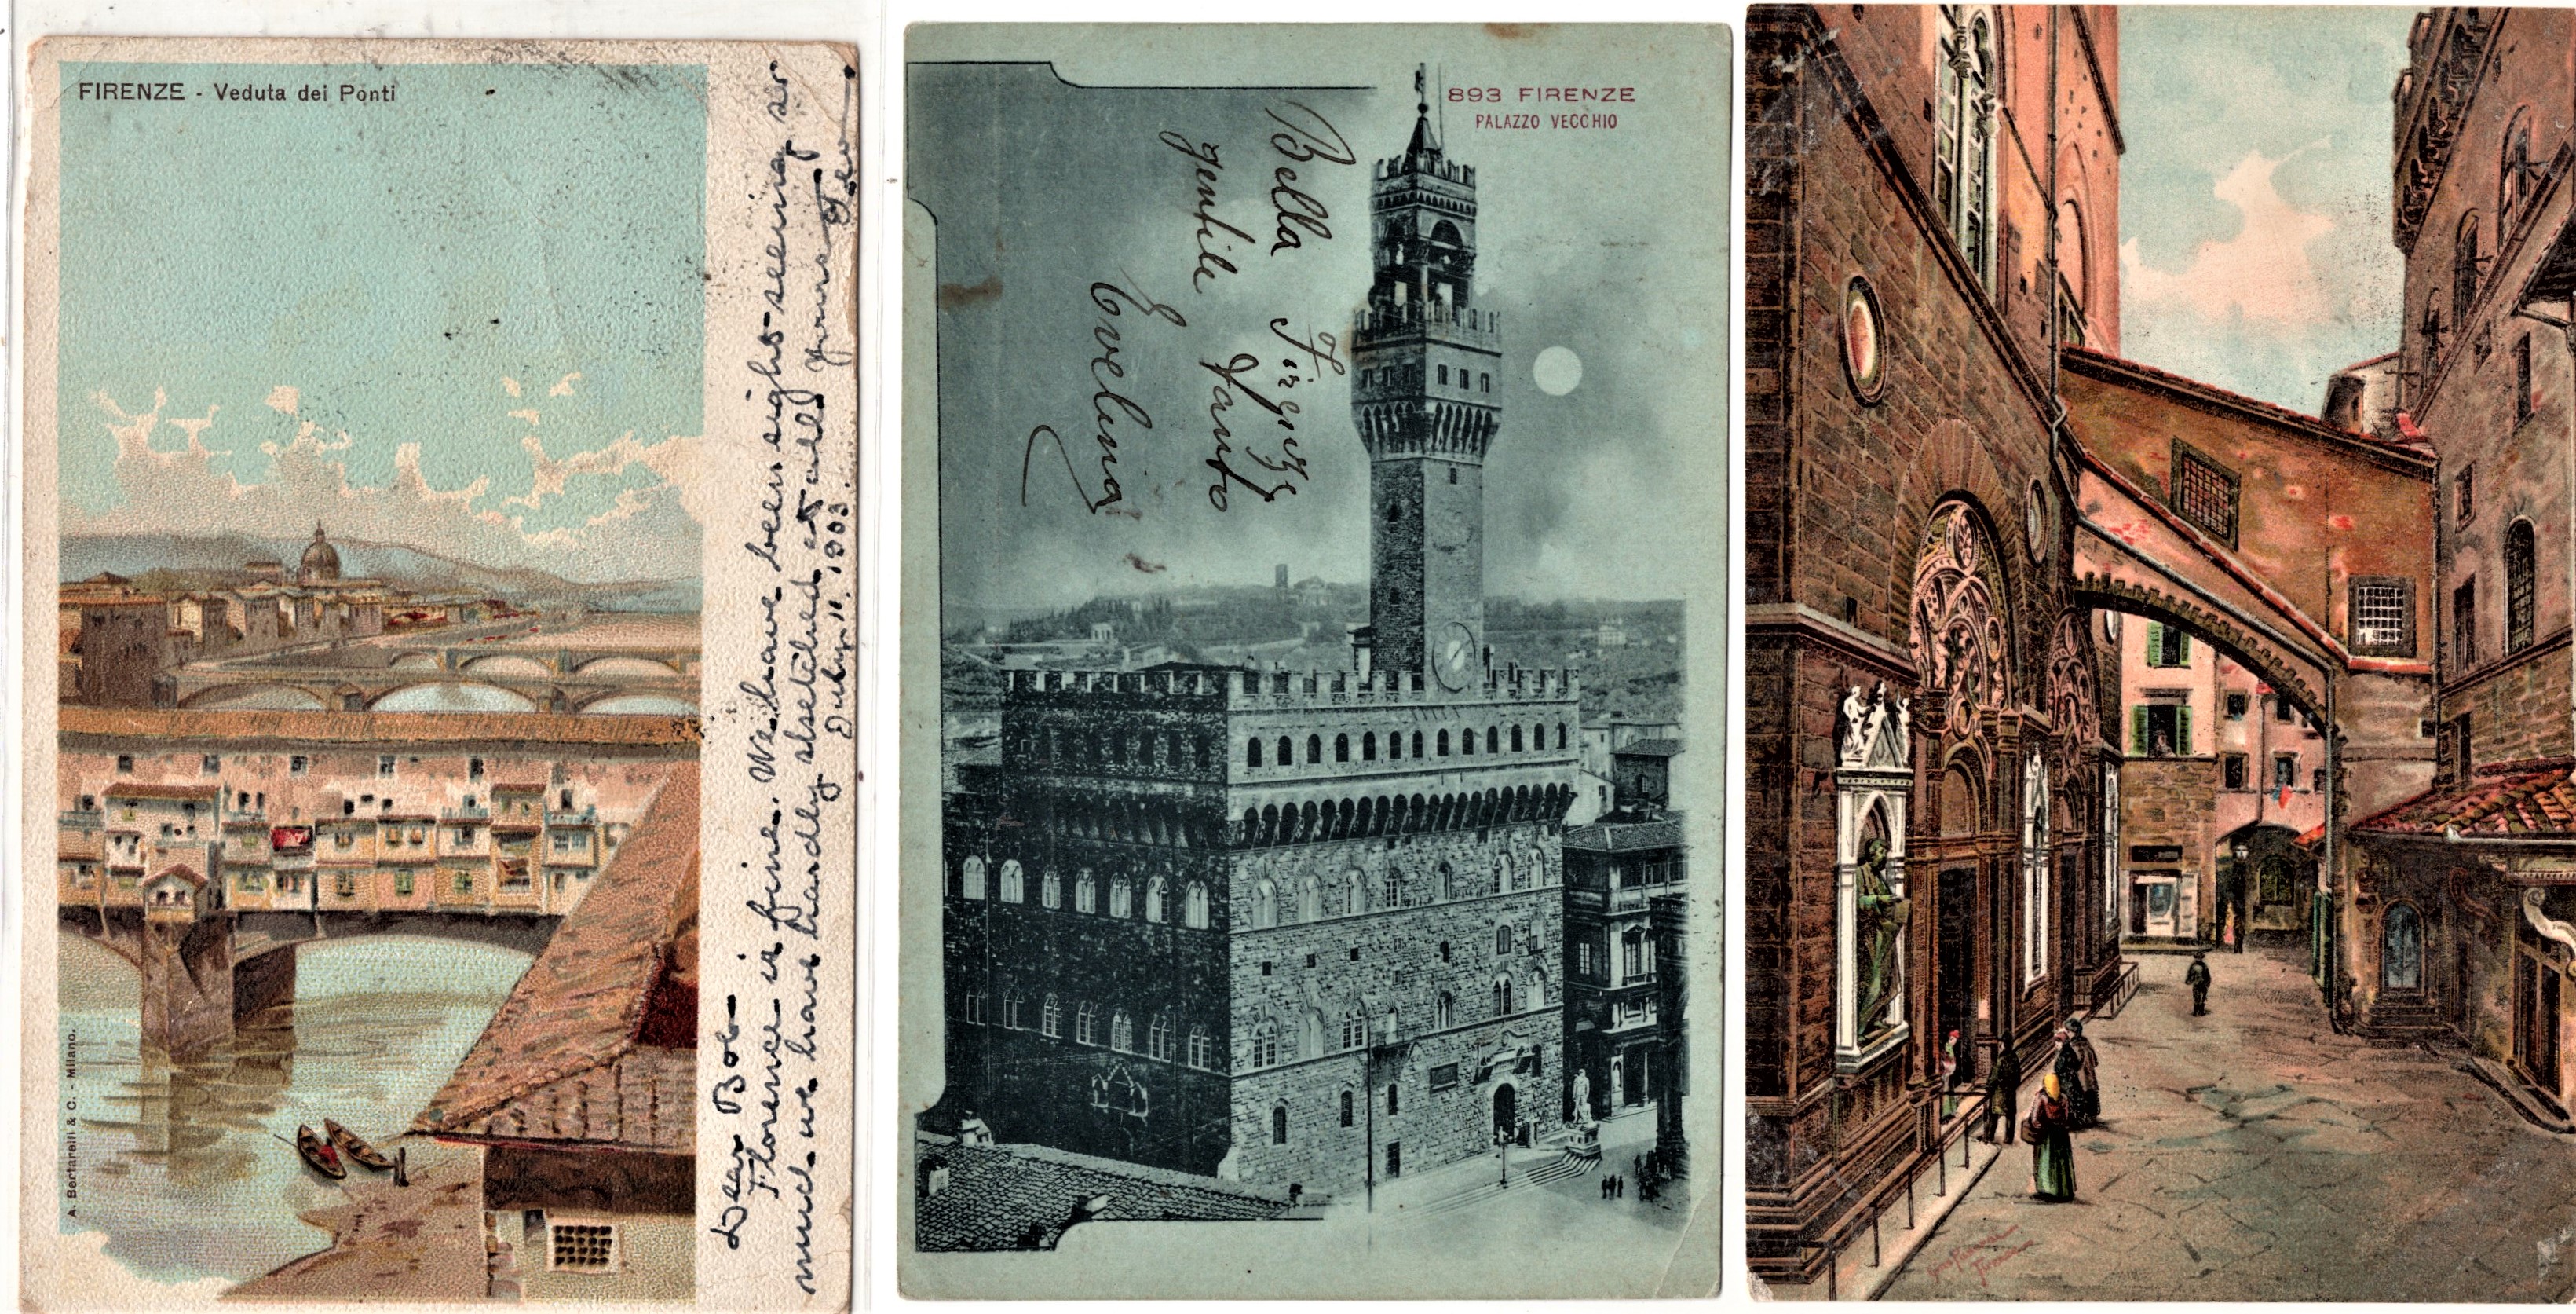 FIRENZE - Veduta dei Ponti
A. Bertarelli & C. - Milano.
Dear Bob -
Florence is fine. We have been sight-seeing so
much we have hardly at all
July 11. 1903.
893 FIRENZE
PALAZZO VECCHIO
Bella Firenze
gentile
Evelina